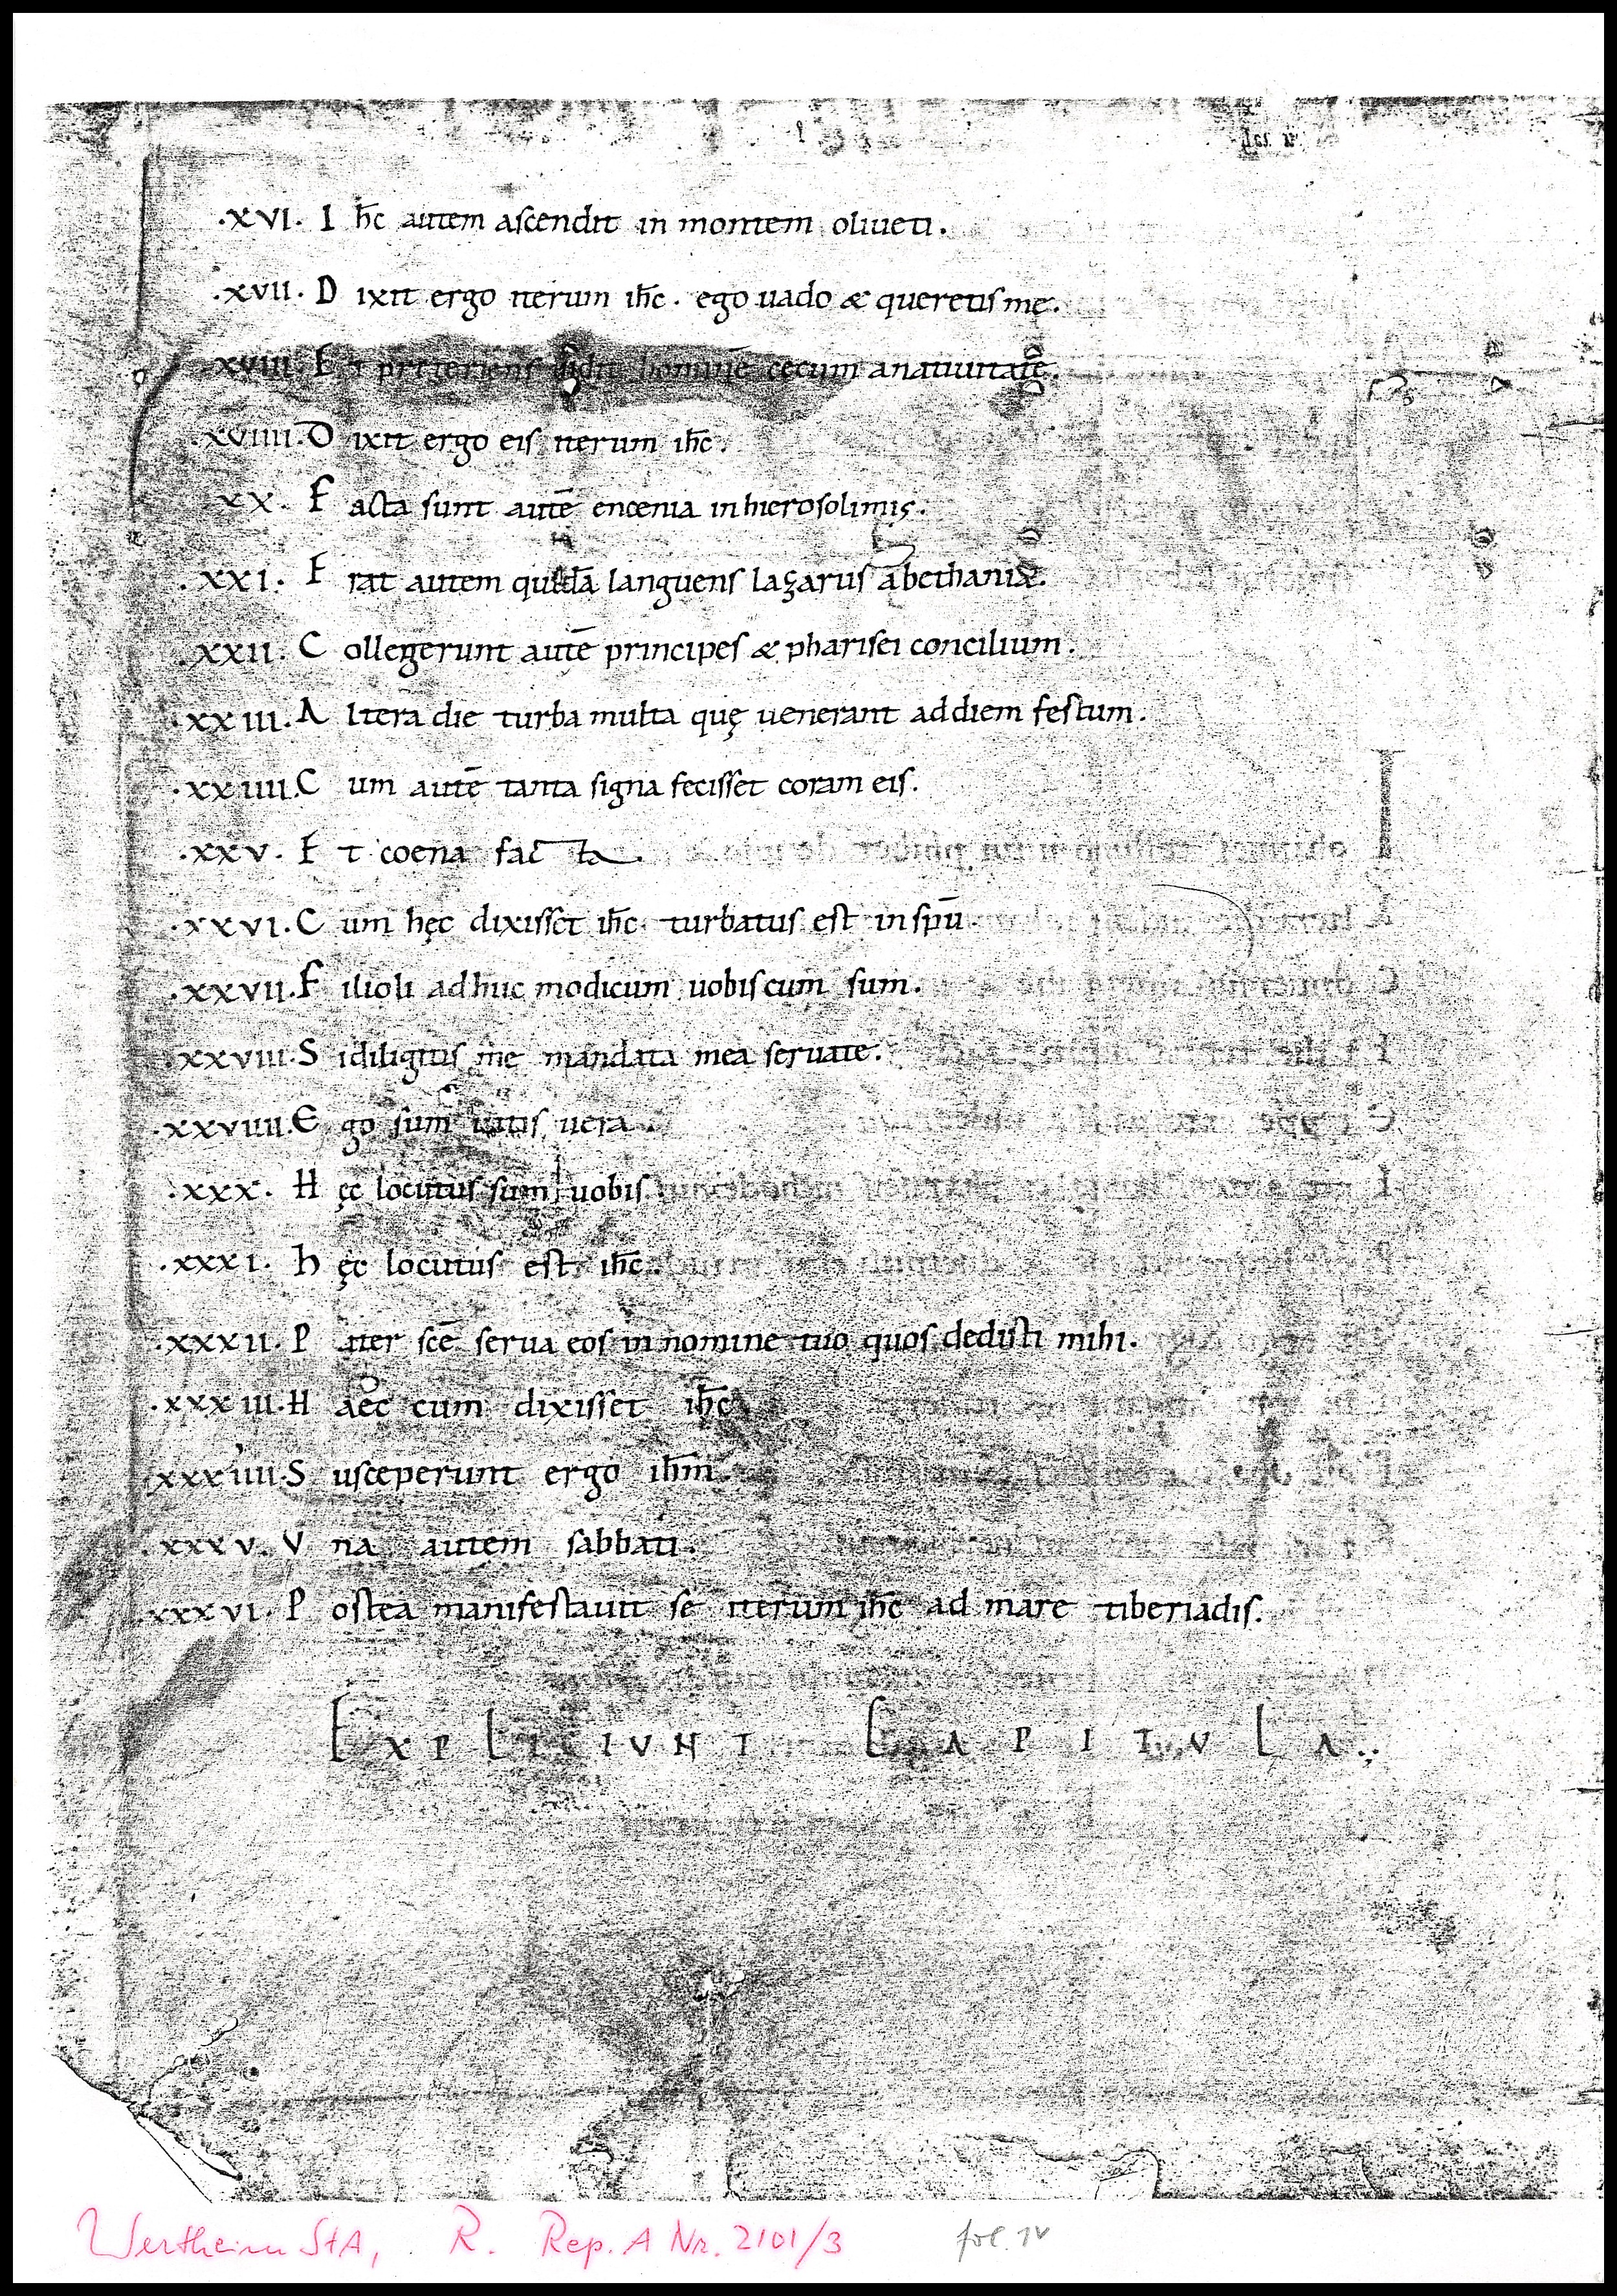 .XVI. I h̄c autem aſcendit in montem oliueti.
.XVII. D ixit ergo iterum ih̄c . ego uado & queretis me.
XVIII. E t preteriens uidit hominē cęcum anatiuitatē.
XVIIII. D ixit ergo eiſ iterum ih̄c.
XX. F acta ſunt autē encenia inhieroſolimiſ.
.XXI. E rat autem quidā languenſ lazaruſ abethania.
.XXII. C ollegerunt autē principeſ & phariſei concilium.
.XXIII. A ltera die turba multa quę uenerant addiem feſtum.
.XXIIII. C um autē tanta ſigna feciſſet coram eiſ.
.XXV. E t coena facta.
.XXVI. C um hęc dixiſſet ih̄c turbatuſ eſt inſpū.
.XXVII. F ilioli adhuc modicum uobiſcum ſum.
.XXVIII. S idiligitiſ me mandata mea ſeruate.
.XXVIIII. E go ſum uitiſ uera.
.XXX. H ęc locutuſ ſum uobiſ.
.XXXI. h ęc locutuſ eſt ih̄c.
.XXXII. P ater ſcē ſerua eoſ in nomine tuo quoſ dediſti mihi.
.XXXIII. H aec cum dixiſſet ih̄c
.XXXIIII. S uſceperunt ergo ih̄m.
.XXXV. V na autem ſabbati.
.XXXVI. P oſtea manifeſtauit ſe iterum ih̄c ad mare tiberiadiſ.
EXPLICIUNT CAPITULA.
Wertheim StA, R. Rep. A Nr. 2101/3 fol. 1v